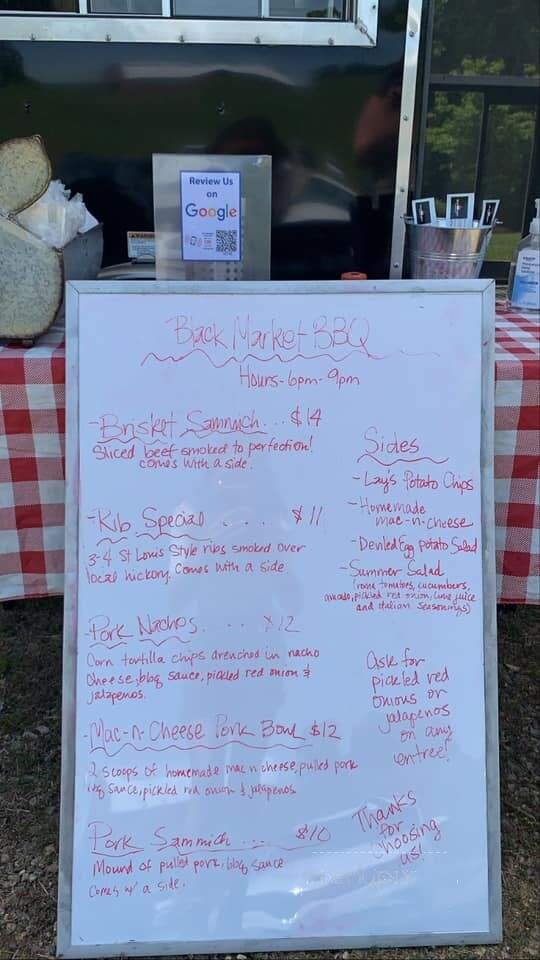 Review Us
on
Google
Black Market BBQ
Hours-6pm-9pm
-Brisket Sammich... $14
Sliced beef smoked to perfection!
comes with a side.
-Rib Special .... $11
3-4 St Louis Style ribs smoked over
local hickory. Comes with a side
-Pork Nachos... $12
Corn tortilla chips drenched in nacho
cheese, bbq sauce, pickled red onion &
jalapenos.
-Mac-n-Cheese Pork Bowl $12
2 scoops of homemade mac n cheese, pulled pork
bbq sauce, pickled red onion & jalapenos
Pork Sammich ... $10
Mound of pulled pork, bbq sauce
Comes w/ a side.
Sides
-Lay's Potato Chips
-Homemade
mac-n-cheese
-Deviled Egg Potato Salad
-Summer Salad
(roma tomatoes, cucumbers,
avocado, pickled red onion, lime juice
and italian seasonings)
Ask for
pickled red
onions or
jalapenos
on any
entree!
Thanks
for
choosing
us!